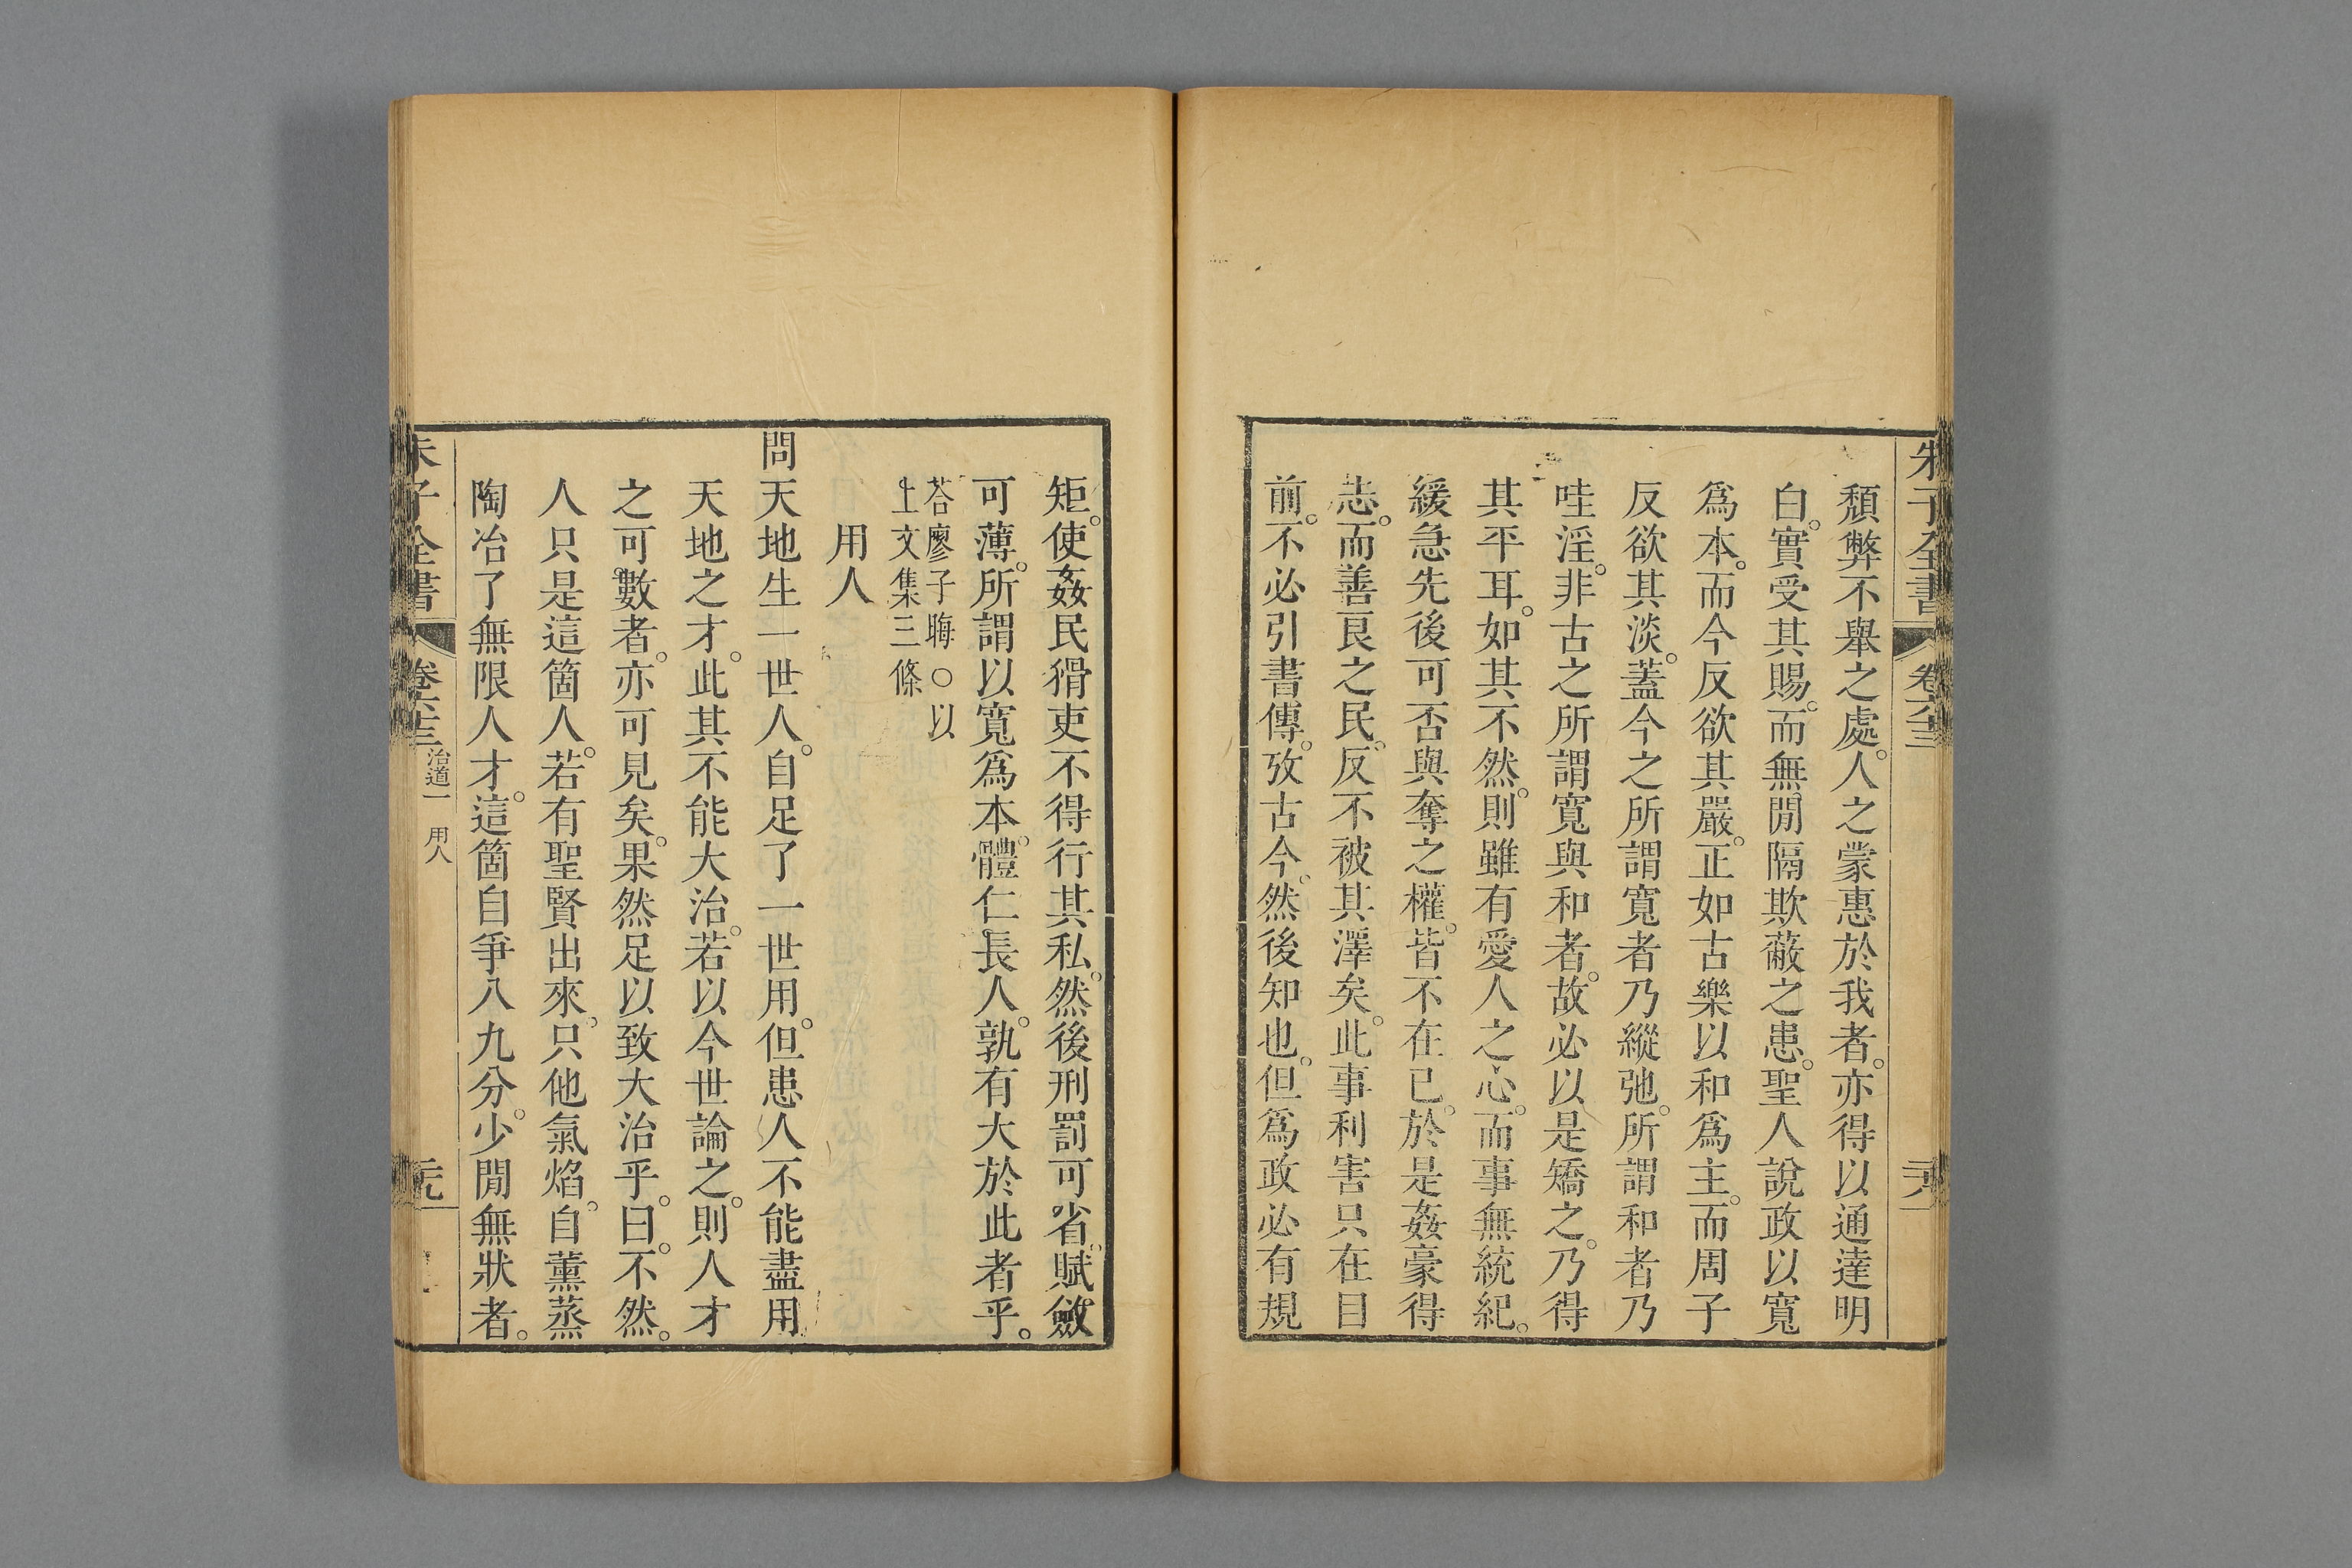 朱子全書 卷六十三 二十八
頹弊不舉之處。人之蒙惠於我者。亦得以通達明
白。實受其賜。而無閒隔欺蔽之患。聖人說政以寬
爲本。而今反欲其嚴。正如古樂以和爲主。而周子
反欲其淡。蓋今之所謂寬者乃縱弛。所謂和者乃
哇淫。非古之所謂寬與和者。故必以是矯之。乃得
其平耳。如其不然。則雖有愛人之心。而事無統紀。
緩急先後可否與奪之權。皆不在己。於是姦豪得
志。而善良之民。反不被其澤矣。此事利害只在目
前。不必引書傳。攷古今。然後知也。但爲政必有規
矩。使姦民猾吏不得行其私。然後刑罰可省。賦斂
可薄。所謂以寬爲本。體仁長人。孰有大於此者乎。
荅廖子晦○以
上文集三條
用人
問天地生一世人。自足了一世用。但患人不能盡用
天地之才。此其不能大治。若以今世論之。則人才
之可數者。亦可見矣。果然足以致大治乎。曰。不然。
人只是這箇人。若有聖賢出來。只他氣焰。自薰蒸
陶冶了無限人才。這箇自爭八九分。少閒無狀者。
朱子全書 卷六十三 治道一 用人 二十九